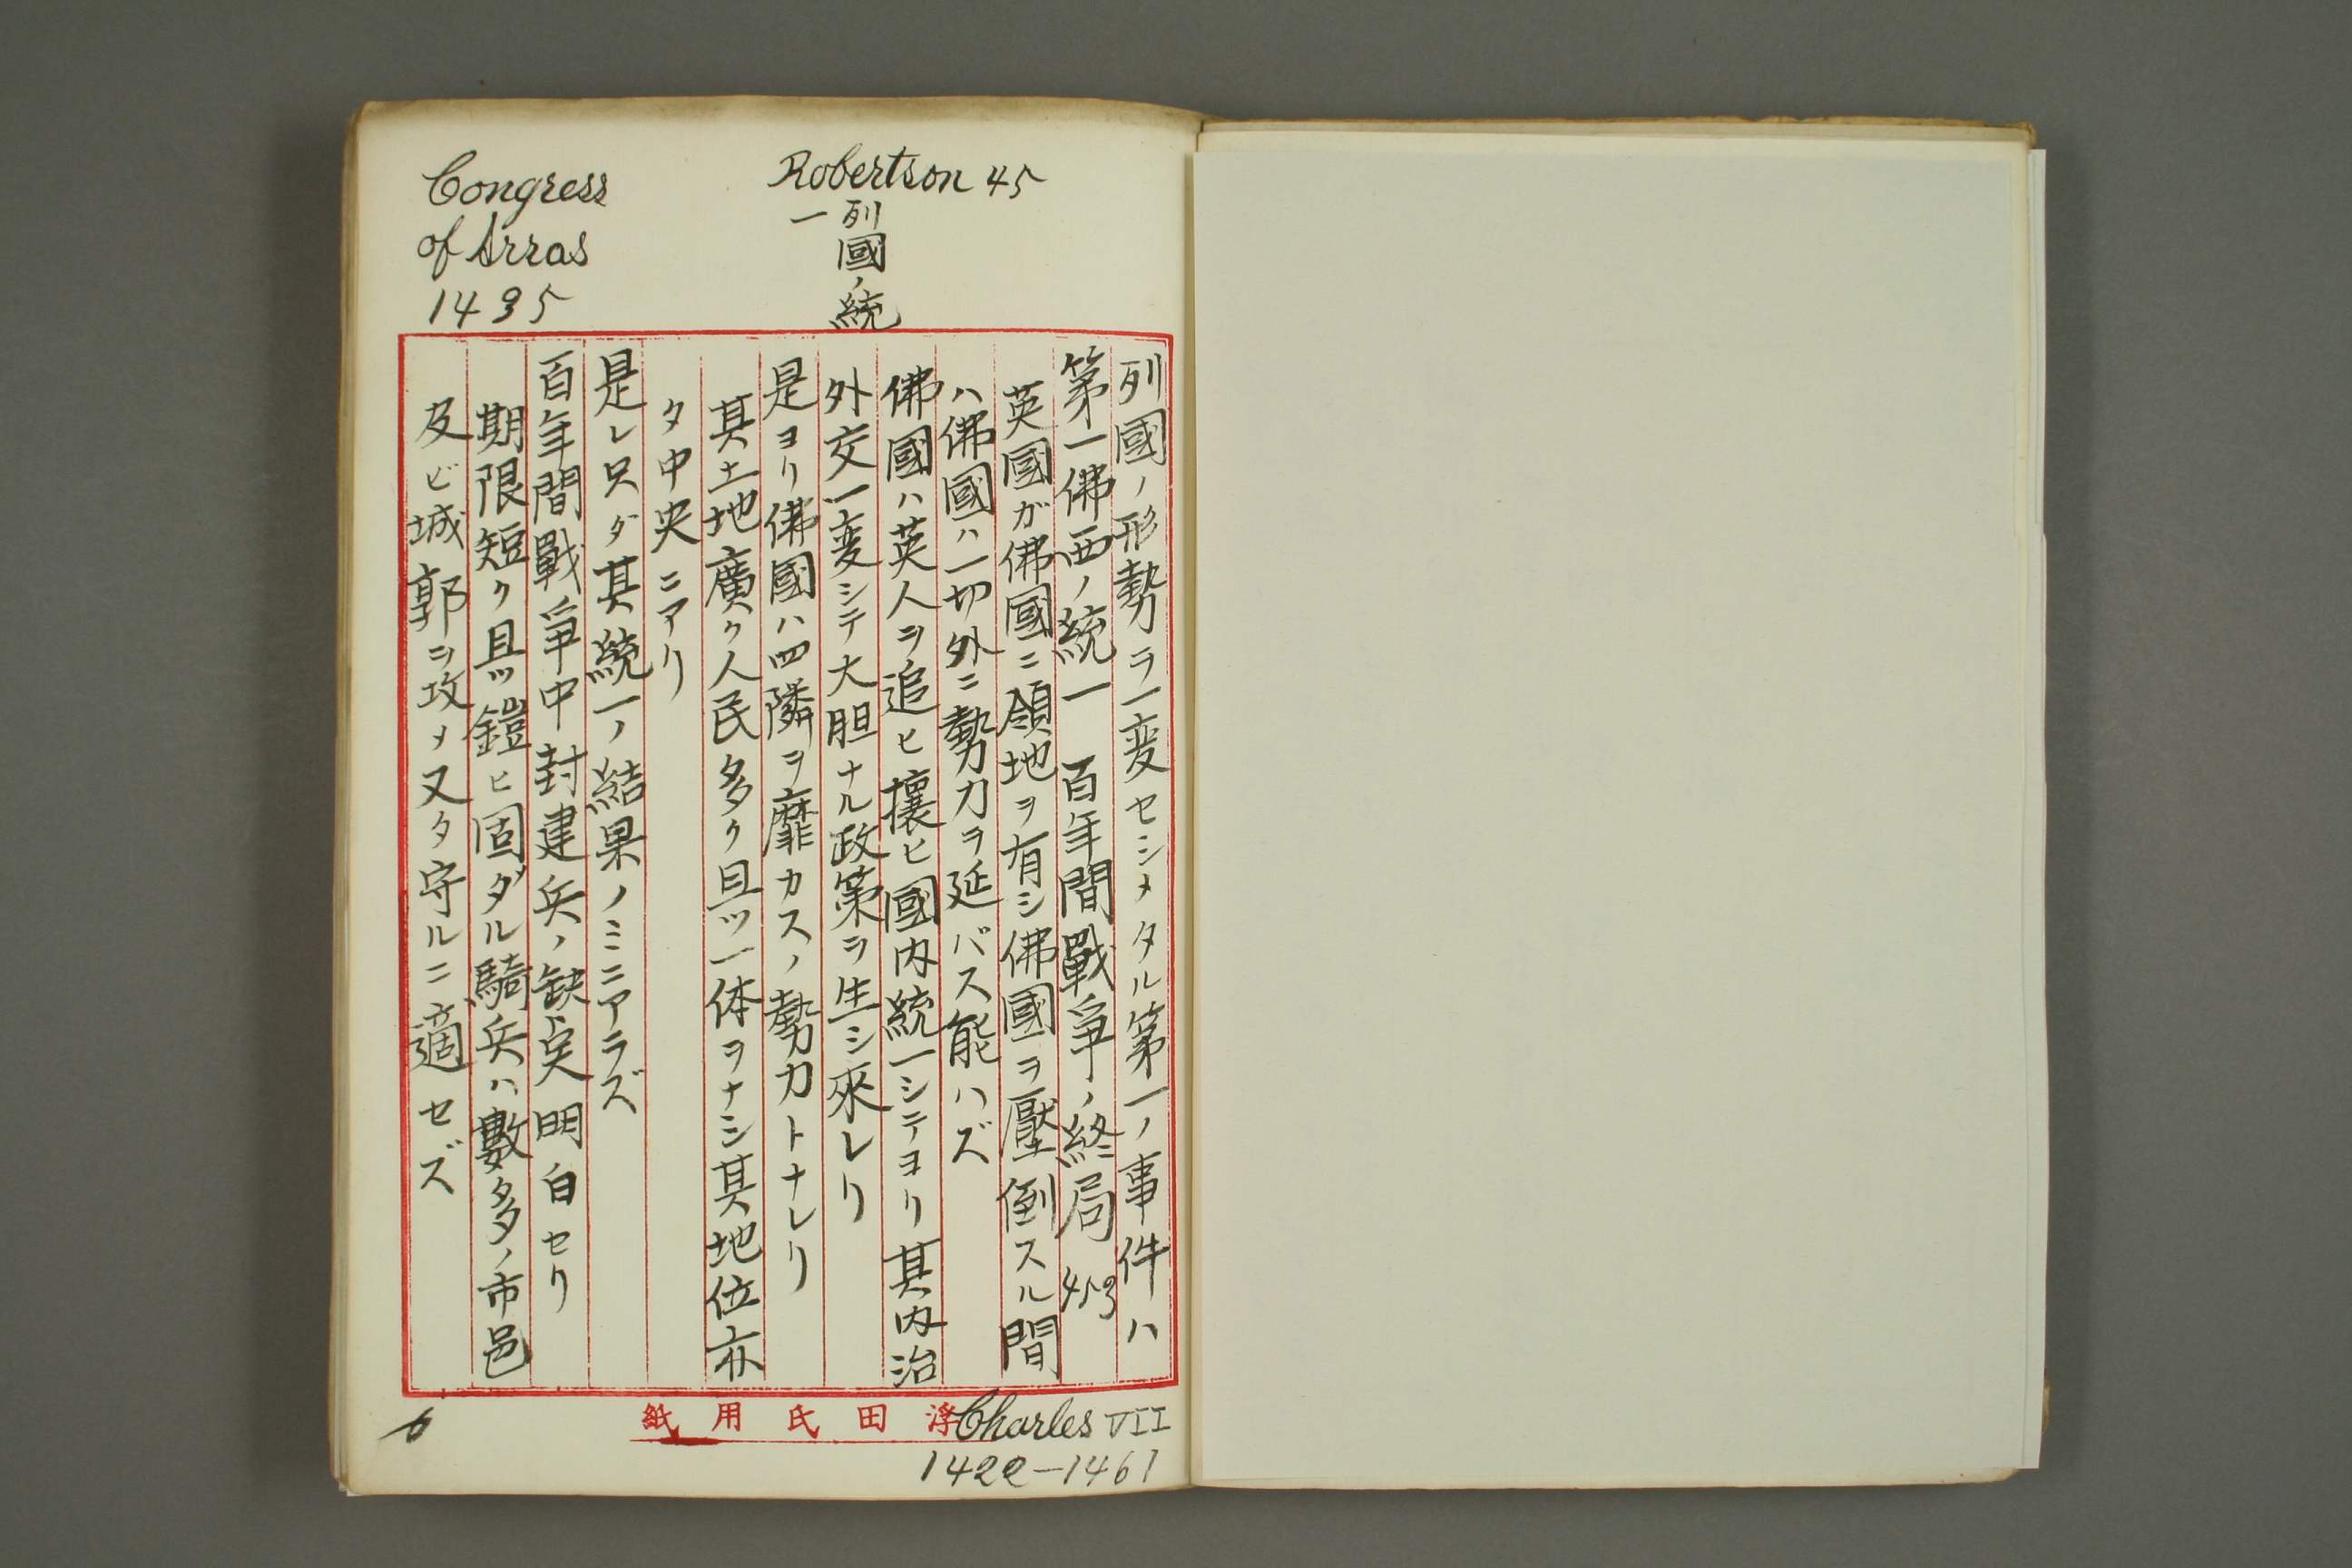 Robertson 45
列國ノ統一
Congress
of Arras
1435
列國ノ形勢ヲ一変セシメタル第一ノ事件ハ
第一佛西ノ統一 百年間戰爭ノ終局 453
英國ガ佛國ニ領地ヲ有シ佛國ヲ壓倒スル間
ハ佛國ハ一切外ニ勢力ヲ延バス能ハズ
佛國ハ英人ヲ追ヒ攘ヒ國内統一シテヨリ其内治
外交一変シテ大胆ナル政策ヲ生シ來レリ
是ヨリ佛國ハ四隣ヲ靡カスノ勢力トナレリ
其土地廣ク人民多ク且ツ一体ヲナシ其地位亦
タ中央ニアリ
是レ只ダ其統一ノ結果ノミニアラズ
百年間戰爭中封建兵ノ缺点明白セリ
期限短ク且ツ鎧ヒ固ダル騎兵ハ數多ノ市邑
及ビ城郭ヲ攻メ又タ守ルニ適セズ
浮田氏用紙
Charles VII
1422-1461
6